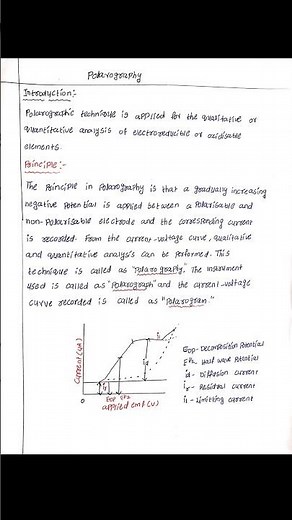 Polarography
Introduction:-
Polarographic technique is applied for the qualitative or
quantitative analysis of electroreducible or oxidisable
elements.
Principle:-
The Principle in Polarography is that a gradually increasing
negative Potential is applied between a Polarisable and
non-Polarisable electrode and the corresponding current
is recorded. From the current-voltage curve, qualitative
and quantitative analysis can be performed. This
technique is called as "Polarography." The instrument
used is called as "Polarograph" and the current-voltage
curve recorded is called as "Polarogram."
Current (uA)
il
id
ir
0
EDP E½
applied emf (V)
EDP- Decomposition Potential
E½- Half wave Potential
id - Diffusion current
ir - Residual current
il - Limitting current